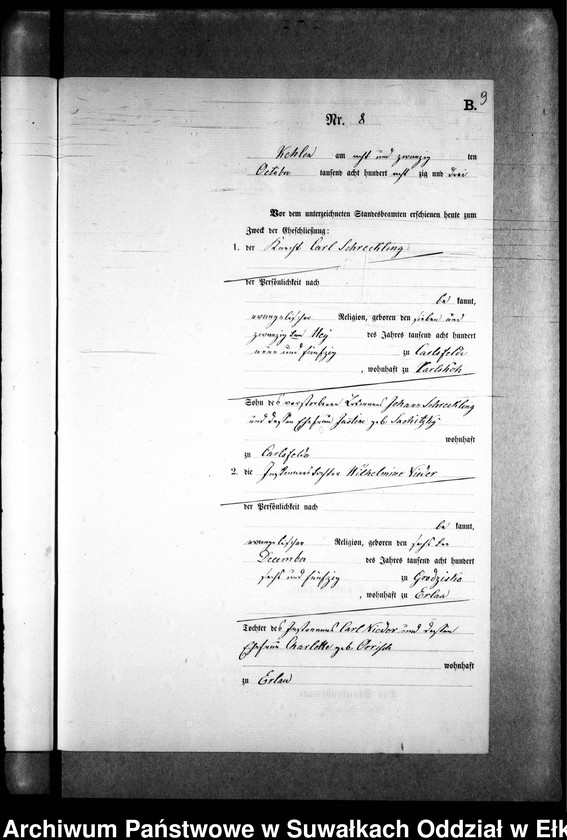 B. 9
Nr. 8
Kehlen am acht und zwanzig ten
October tausend acht hundert acht zig und drei
Vor dem unterzeichneten Standesbeamten erschienen heute zum
Zweck der Eheschließung:
1. der Knecht Carl Schreckling
der Persönlichkeit nach
be kannt,
evangelischer Religion, geboren den sieben und
zwanzig ten May des Jahres tausend acht hundert
neun und fünfzig zu Carlsfelde
, wohnhaft zu Karlshöh
Sohn des verstorbenen Johann Schreckling
und dessen Ehefrau Justine geb
wohnhaft
zu Carlsfelde
2. die Instmannstochter Wilhelmine Nieder
der Persönlichkeit nach
be kannt,
evangelischer Religion, geboren den sechs ten
December des Jahres tausend acht hundert
sechs und fünfzig zu Grodzisko
, wohnhaft zu Erlau
Tochter des Instmannes Carl Nieder und dessen
Ehefrau Charlotte geb
wohnhaft
zu Erlau
Archiwum Państwowe w Suwałkach Oddział w Ełk